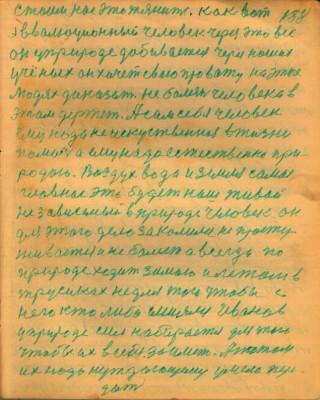 158
нас это тянит. как вот
эвволюционный человек через это все
он у природе добивается через наших
учёных он хочет свою правату на этих
людях доказать. не была человека в
этом держит. А сам себя человек
ему надо не искуственная в жизни
помощь а ему надо естественно при-
родою. Воздух вода и земля самое
главное это будет наш живой
независимый в природе человек. он
для этого дело закалили не просту-
живается и не болеет а всегда по
природе ходит зимою и летом в
трусиках не для того чтобы с
него кто либо смиялся Иванов
у природе сил набирается для того
чтобы их в себе
их надо нуждающему умело пере-
дать